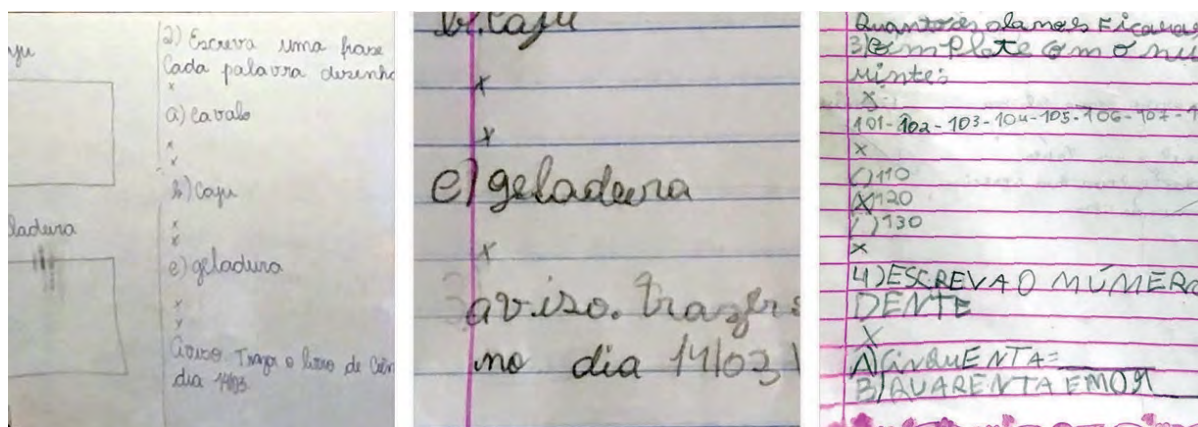 aju
ladura
2) Escreva uma frase
Cada palavra desenh
x
a) cavalo
x
x
b) Caju
x
x
e) geladura
x
x
x
aviso. Trazer o livro de Ciên
dia 14/03
b). Caju
x
x
e) geladeira
x
aviso. trazer
no dia 14/03
Quantos Ficara
3) Complete com o nu
uinte:
x
101-102-103-104-105-106-107-1
x
( ) 110
(X) 120
( ) 130
x
4) ESCREVA O NÚMERO
DENTE
X
A) CINQUENTA=
B) QUARENTA E